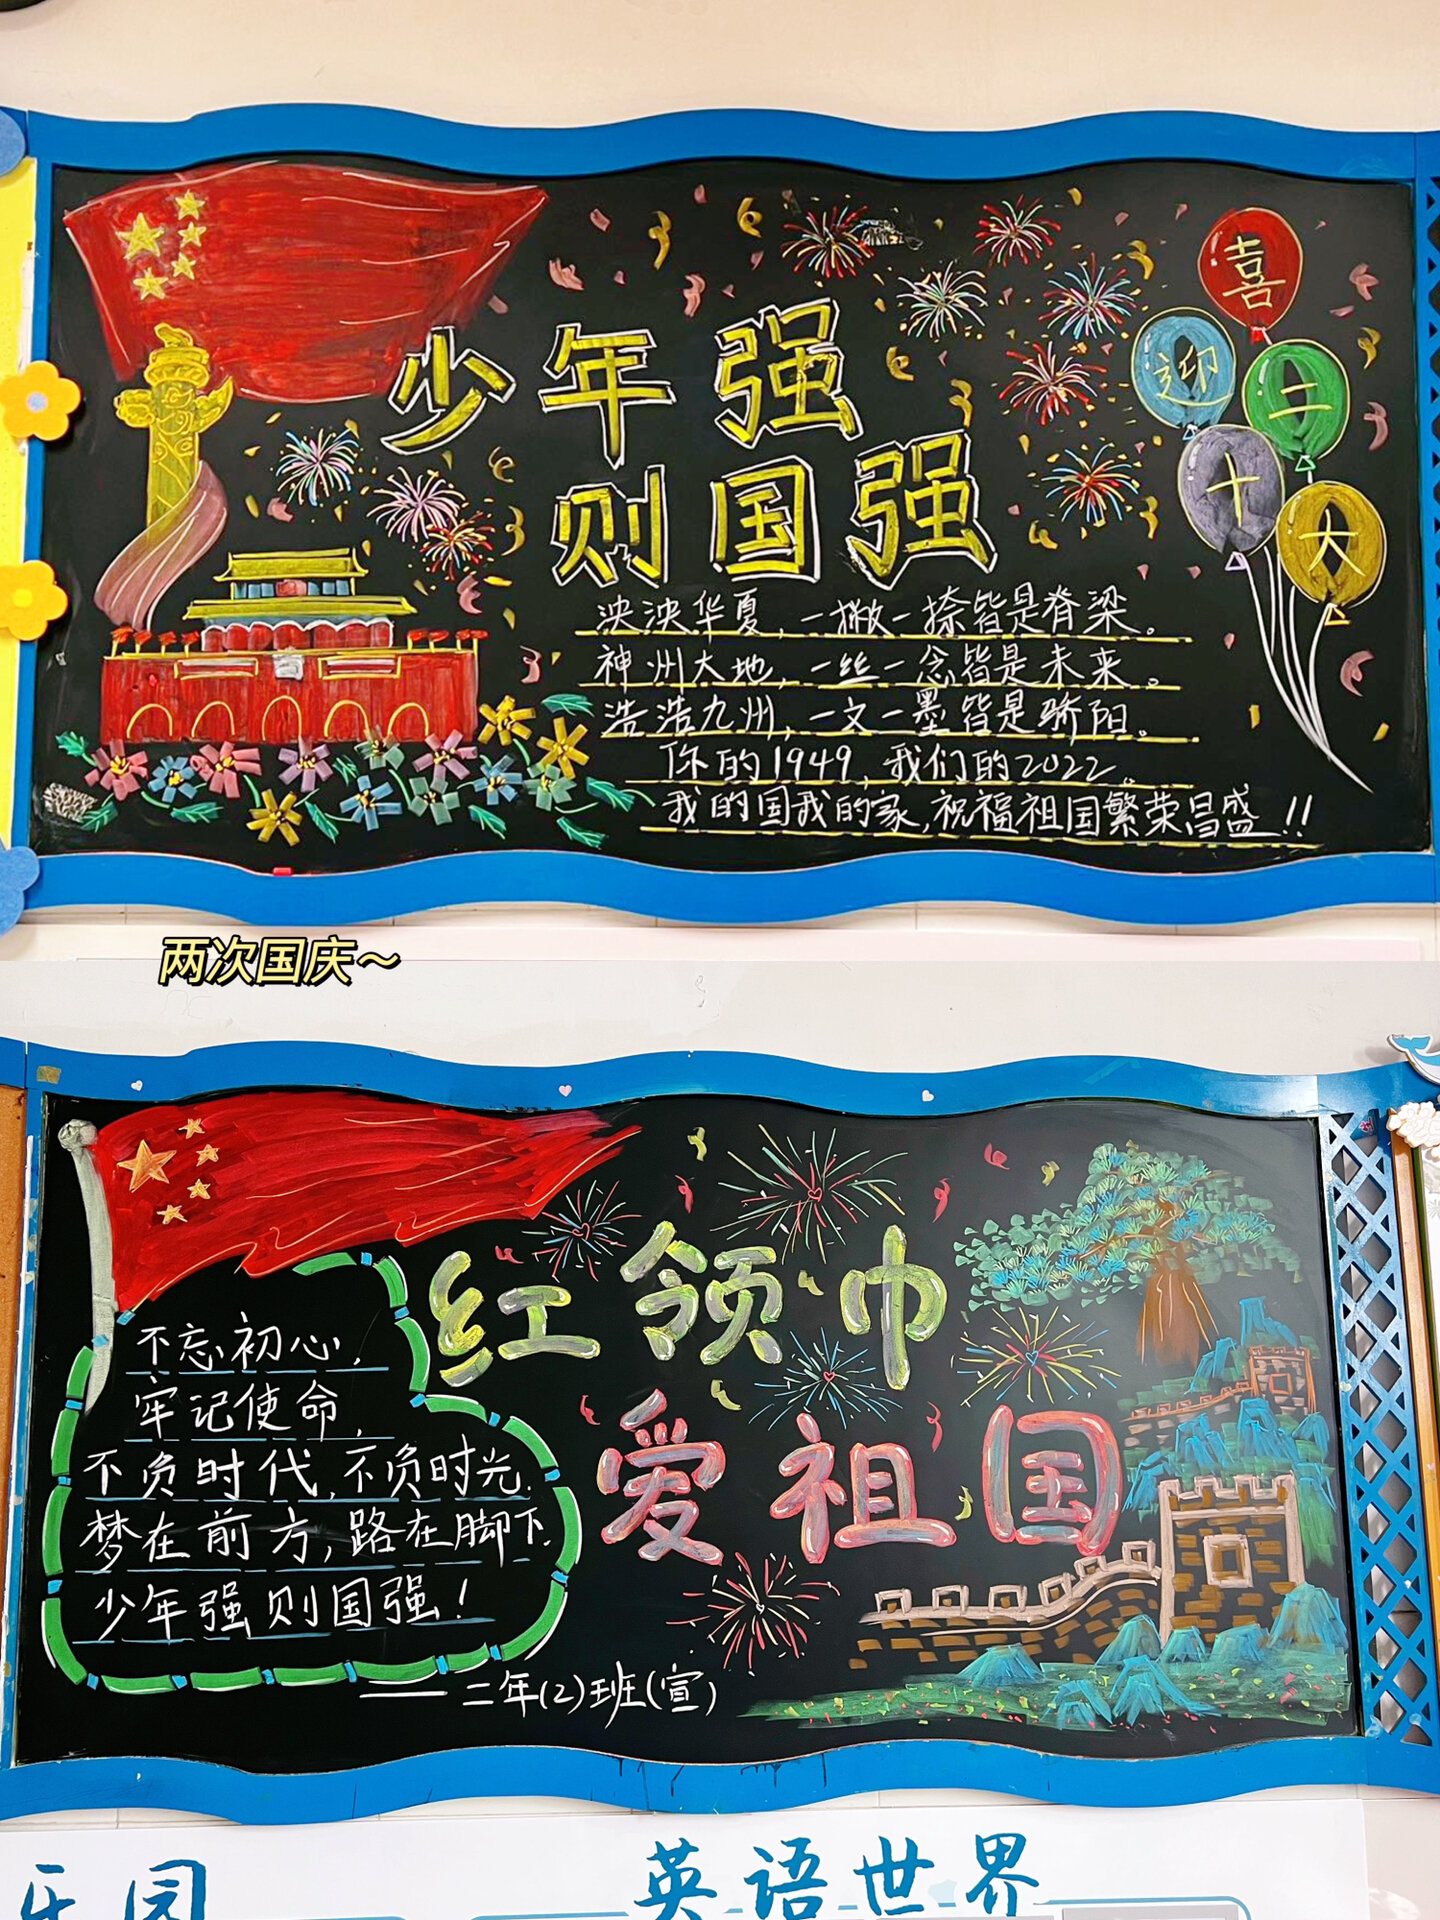 少年强
则国强
喜
迎
二
十
大
泱泱华夏，一撇一捺皆是脊梁。
神州大地，一丝一念皆是未来。
浩浩九州，一文一墨皆是骄阳。
你的1949，我们的2022。
我的国我的家，祝福祖国繁荣昌盛！！
两次国庆～
红领巾
爱祖国
不忘初心，
牢记使命，
不负时代，不负时光，
梦在前方，路在脚下，
少年强则国强！
——二年(2)班(宣)
乐园
英语世界